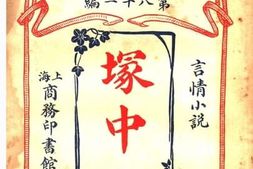 第八十一編
言情小説
塚中
上海
商務印書館